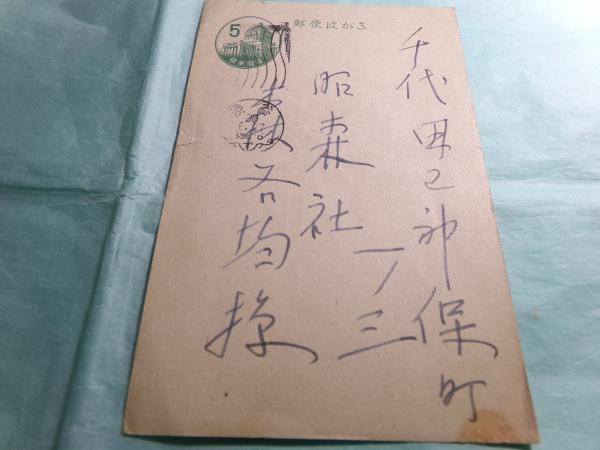 郵便はがき
5
日本郵便
千代田区神保町
一ノ三
昭森社
森谷均様